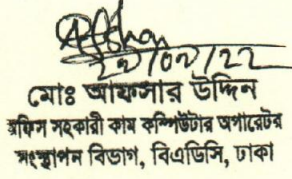 ২২/০৮/২২
মোঃ আফসার উদ্দিন
অফিস সহকারী কাম কম্পিউটার অপারেটর
সংস্থাপন বিভাগ, বিএডিসি, ঢাকা